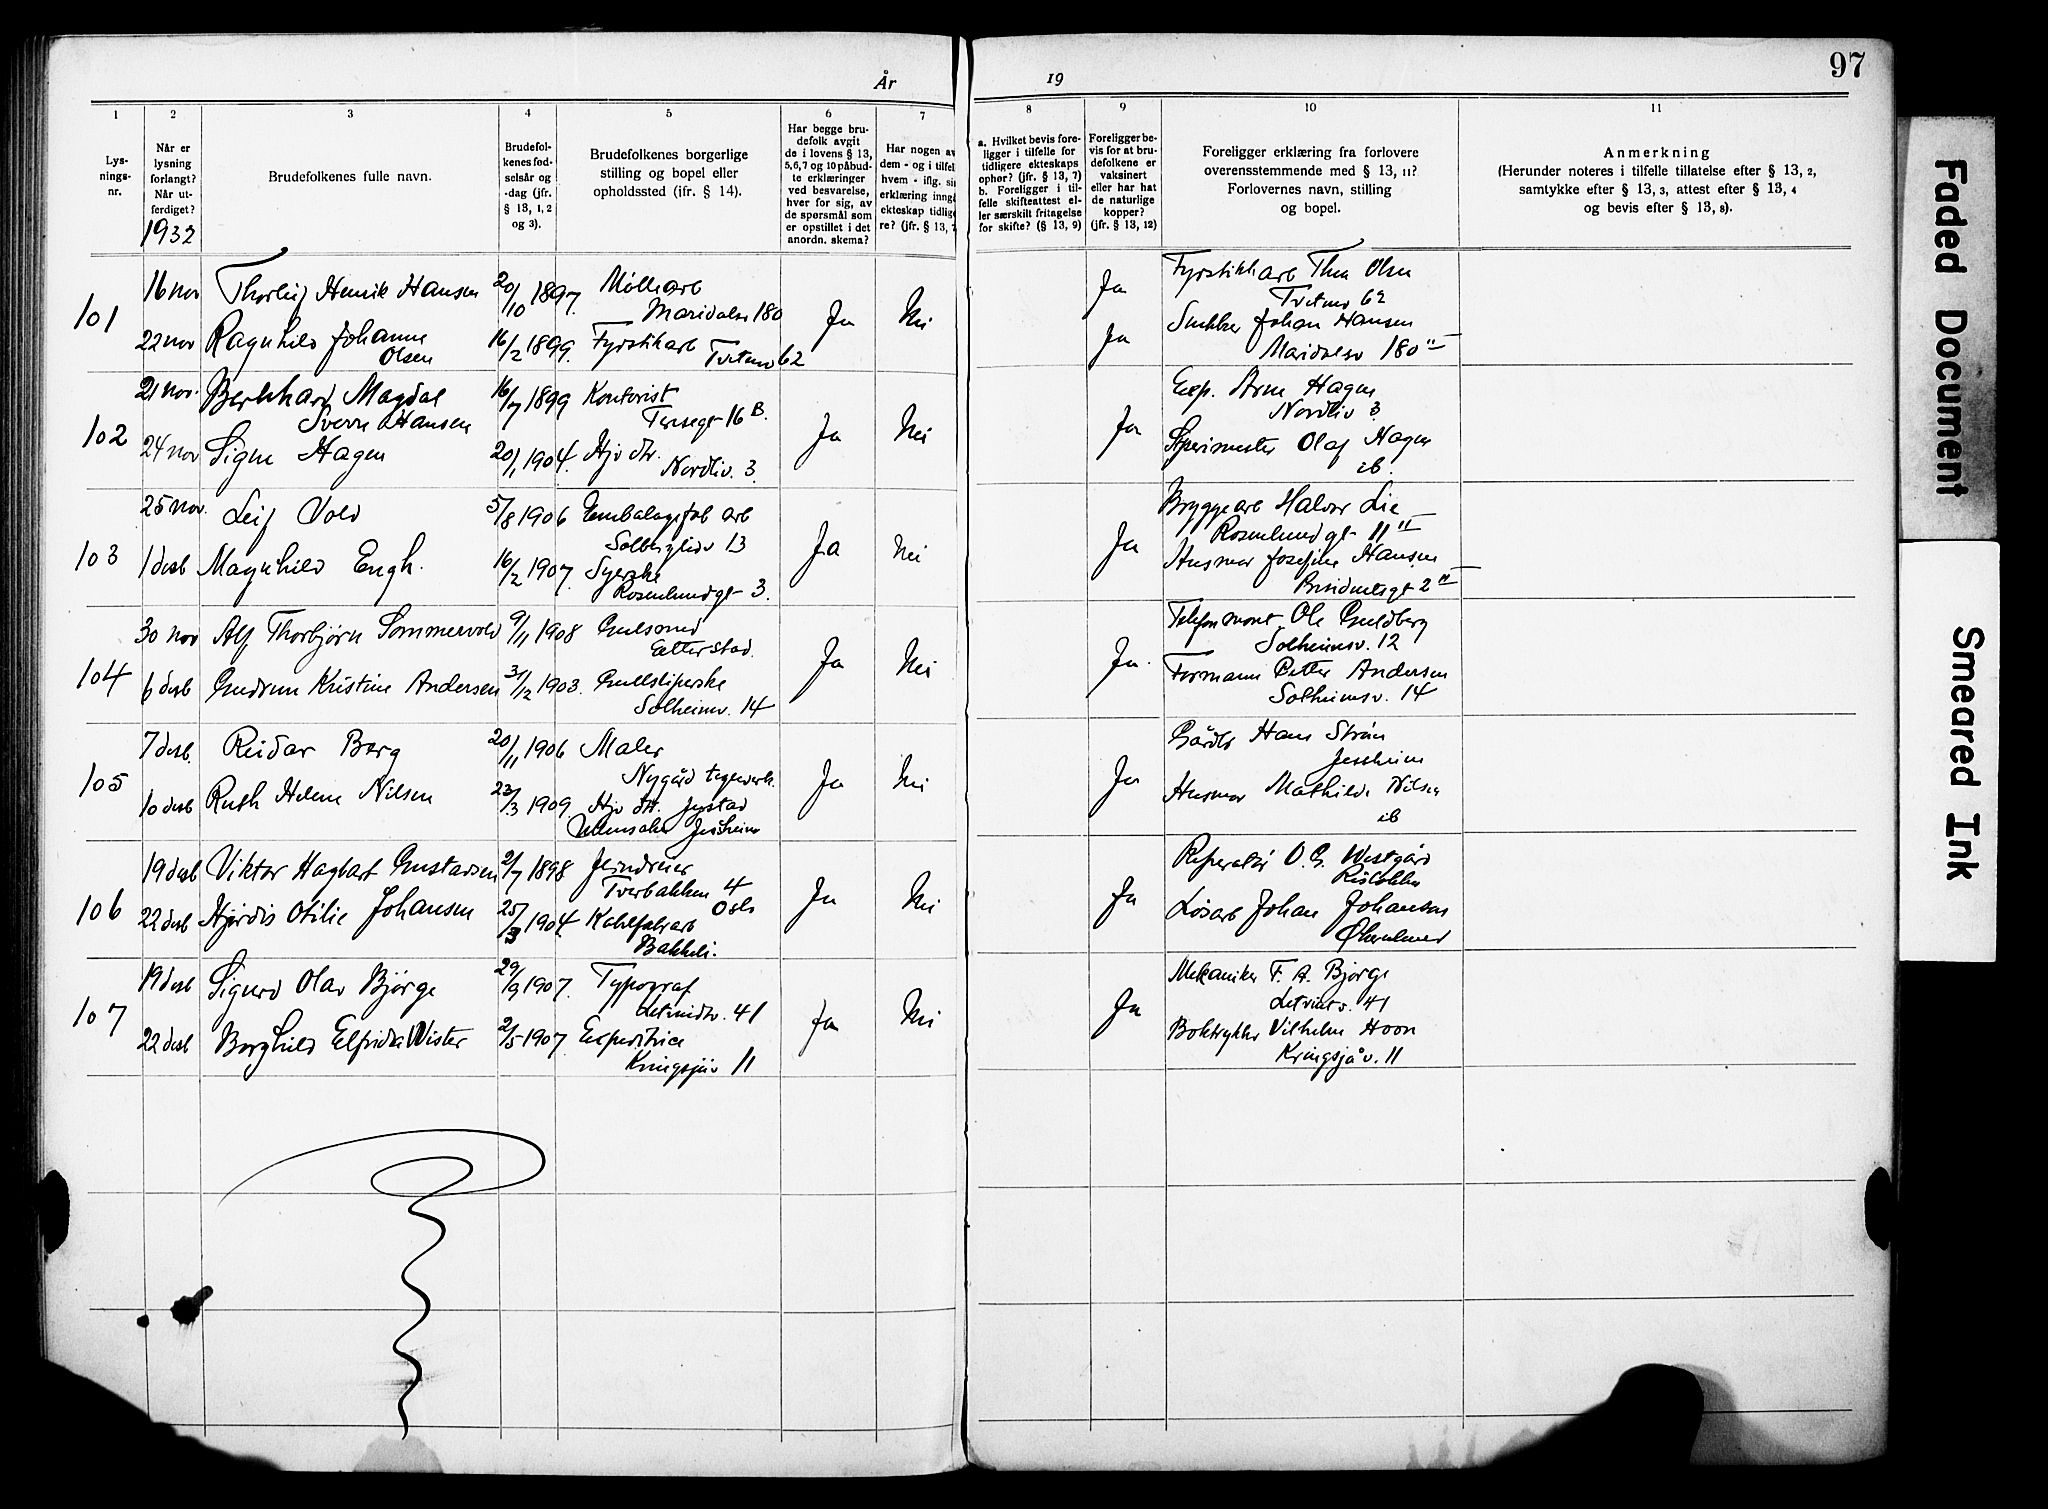 97
År
19
1
2
3
4
5
6
7
8
9
10
11
Lys-
nings-
nr.
Når er
lysning
forlangt?
Når ut-
ferdiget?
1932
Brudefolkenes fulle navn.
Brudefol-
kenes fød-
selsår og
-dag (jfr.
§ 13, 1, 2
og 3).
Brudefolkenes borgerlige
stilling og bopel eller
opholdssted (ifr. § 14).
Har begge bru-
defolk avgit
de i lovens § 13,
5,6,7 og 10 påbud-
te erklæringer
ved besvarelse,
hver for sig, av
de spørsmål som
er opstillet i det
anordn. skema?
Har nogen av
dem - og i tilfel
hvem - iflg. si
erklæring inngå
ekteskap tidlig
re? (jfr. § 13, 7
a. Hvilket bevis fore-
ligger i tilfelle for
tidligere ekteskaps
ophor? (jfr. § 13, 7)
b. Foreligger i til-
felle skifteattest el-
ler særskilt fritagelse
for skifte? (§ 13, 9)
Foreligger be-
vis for at bru-
defolkene er
vaksinert
eller har hat
de naturlige
kopper?
(jfr. § 13, 12)
Foreligger erklæring fra forlovere
overensstemmende med § 13, 11?
Forlovernes navn, stilling
og bopel.
Anmerkning
(Herunder noteres i tilfelle tillatelse efter § 13, 2,
samtykke efter § 13, 3, attest efter § 13, 4
og bevis efter § 13, 8).
101
16 nov
Thorleif Henrik Hansen
20/10 1897.
Møllearb
Maridalsv 180
Ja
Nei
Ja
Fyrstikkarb Thea Olsen
Tvetenv 62
22 nov
Ragnhild Johanne
Olsen
16/2 1899.
Fyrstikarb
Tvetenv 62
Ja
Snekker Johan Hansen
Maridalsv 180 II
102
21 nov.
Bernhard Magdal
Sverre Hansen
16/7 1899
Kontorist
Teresegt 16 B.
Ja
Nei
Ja
Exp. Arne Hagen
Nordliv 3
24 nov
Signe Hagen
20/1 1904.
Hjv dtr.
Nordliv. 3.
Olaf Hagen
ib.
103
25 nov.
Leif Vold
5/8 1906
Embalagefab arb
Solbergliv 13
Ja
Nei
Ja
Bryggearb Halvor Lie
Rosenlundgt 11 II
1 desb
Magnhild Engh.
16/2 1907.
Syerske
Rosenlundgt 3.
Husmor Josefine Hansen
Presidentsgt 2 II
104
30 nov
Alf Thorbjørn Sommervold
9/11 1908
Gulsmed
Etterstad.
Ja
Nei
Ja.
Telefonmont Ole Guldberg
Solheimsv. 12
6 desb
Gudrun Kristine Andersen
31/12 1903.
Gullsliperske
Solheimv. 14
Formann Petter Andersen
Solheimsv. 14
105
7 desb.
Reidar Berg
20/11 1906
Maler
Nygård teglverk.
Ja
Nei
Ja
Gårdbr Hans Strøm
Jessheim
10 desb
Ruth Helene Nilsen
23/3 1909.
Hjv dtr. Jystad
Ullensaker Jessheim
Husmor Mathilde Nilsen
ib
106
19 desb
Viktor Hagbart Gustavsen
2/7 1898
Tverbakken 4
Oslo
Ja
Nei
Ja
Reperatør O. G. Westgård
Risløkka
22 desb
Hjørdis Otilie Johansen
25/3 1904.
Kabelfabrarb
Bakkeli.
Løsarb Johan Johansen
Økernlund
107
19 desb
Sigurd Olav Bjørge
29/9 1907.
Typograf
Lutvindv. 41
Ja
Nei
Ja
Mekaniker F. A. Bjørge
Lutvintv. 41
22 desb
Borghild Elfrida Wister
2/5 1907.
Expeditrice
Kringsjåv 11
Boktrykker Vilhelm Hoon
Kringsjåv. 11
Faded Document
Smeared Ink